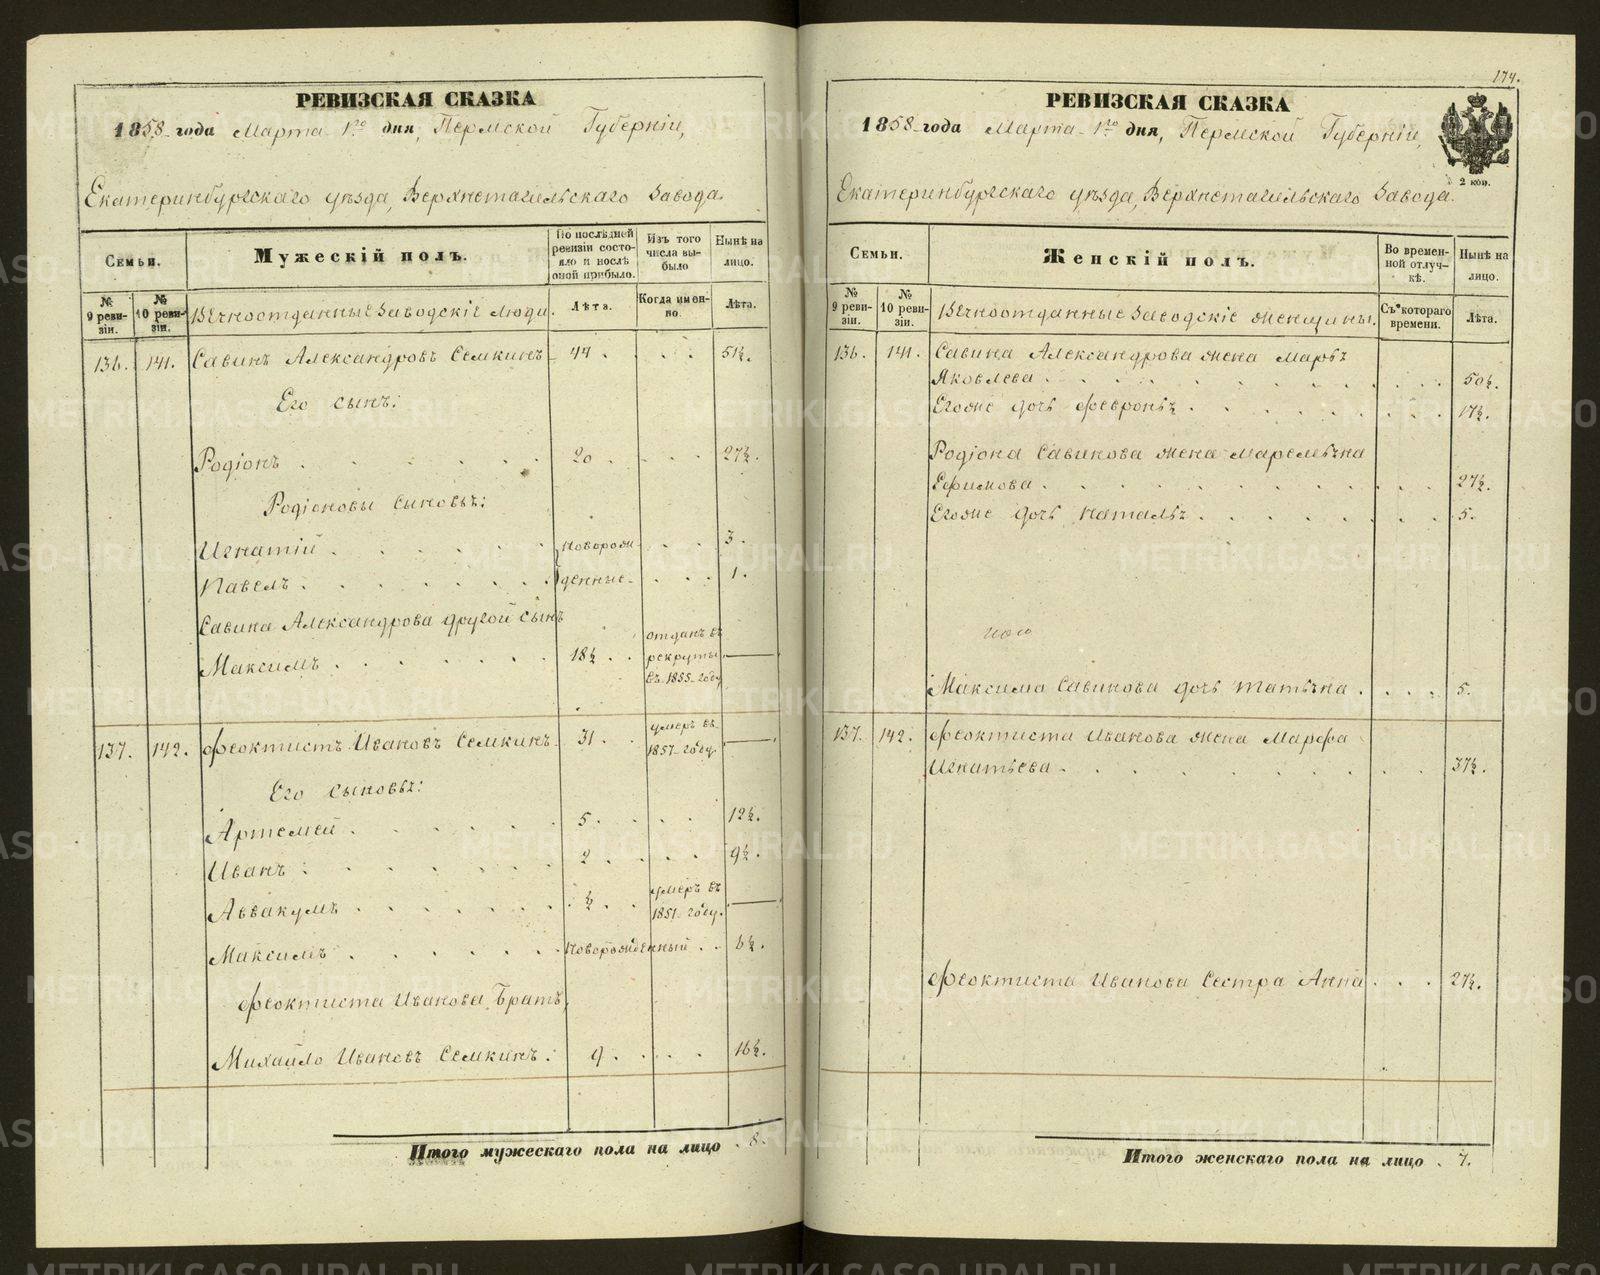 РЕВИЗСКАЯ СКАЗКА
1858 года Марта 1го дня, Пермской Губерніи,
Екатеринбургскаго уѣзда, Верхнетагильскаго Завода.
Семьи.
Мужескій полъ.
По послѣдней ревизіи состояло и послѣ оной прибыло.
Изъ того числа выбыло
Нынѣ на лицо.
№ 9 ревизіи.
№ 10 ревизіи.
Вѣчноотданные Заводскіе люди.
Лѣта.
Когда именно.
Лѣта.
136. 141. Савинъ Александровъ Семкинъ 44 51½.
Его сынъ:
Родіонъ 20 27½.
Родіоновы сыновья:
Игнатій новорож- 3.
Павелъ денные 1.
Савина Александрова другой сынъ
Максимъ 18½ отданъ въ рекруты въ 1855 году
137. 142. Феоктистъ Ивановъ Семкинъ 31 умеръ въ 1857 году
Его сыновья:
Артемей 5 12½.
Иванъ 2 9½.
Аввакумъ ½ умеръ въ 1851 году.
Максимъ новорожденный 6½.
Феоктиста Иванова Братъ,
Михайло Ивановъ Семкинъ 9 16½.
Итого мужескаго пола на лицо 8.
174.
РЕВИЗСКАЯ СКАЗКА
1858 года Марта 1го дня, Пермской Губерніи,
2 коп.
Екатеринбургскаго уѣзда, Верхнетагильскаго Завода.
Семьи.
Женскій полъ.
Во временной отлучкѣ.
Нынѣ на лицо.
№ 9 ревизіи.
№ 10 ревизіи.
Вѣчноотданные Заводскіе женщины.
Съ котораго времени.
Лѣта.
136. 141. Савина Александрова жена Марья
Яковлева 50½.
Егоже дочь Февронья 17½.
Родіона Савинова жена Маремьяна
Ефимова 27½.
Егоже дочь Наталья 5.
Максима Савинова дочь Татьяна 5.
137. 142. Феоктиста Иванова жена Марфа
Игнатьева 37½.
Феоктиста Иванова Сестра Анна 27½.
Итого женскаго пола на лицо 7.
METRIKI.GASO-URAL.RU